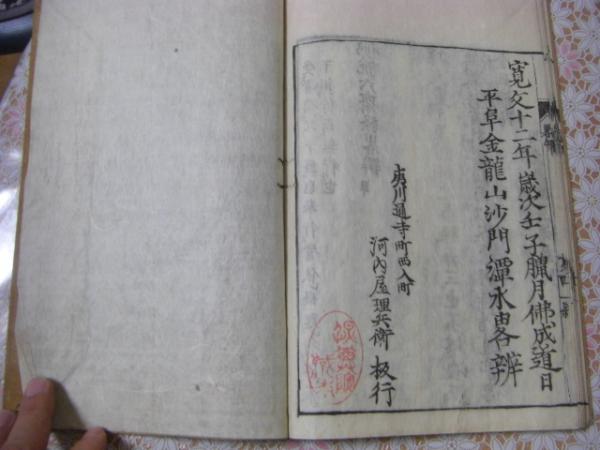 寛文十二年歳次壬子臘月佛成道日
平阜金龍山沙門潭水畧辨
夷川通寺町西入町
河内屋理兵衛 板行